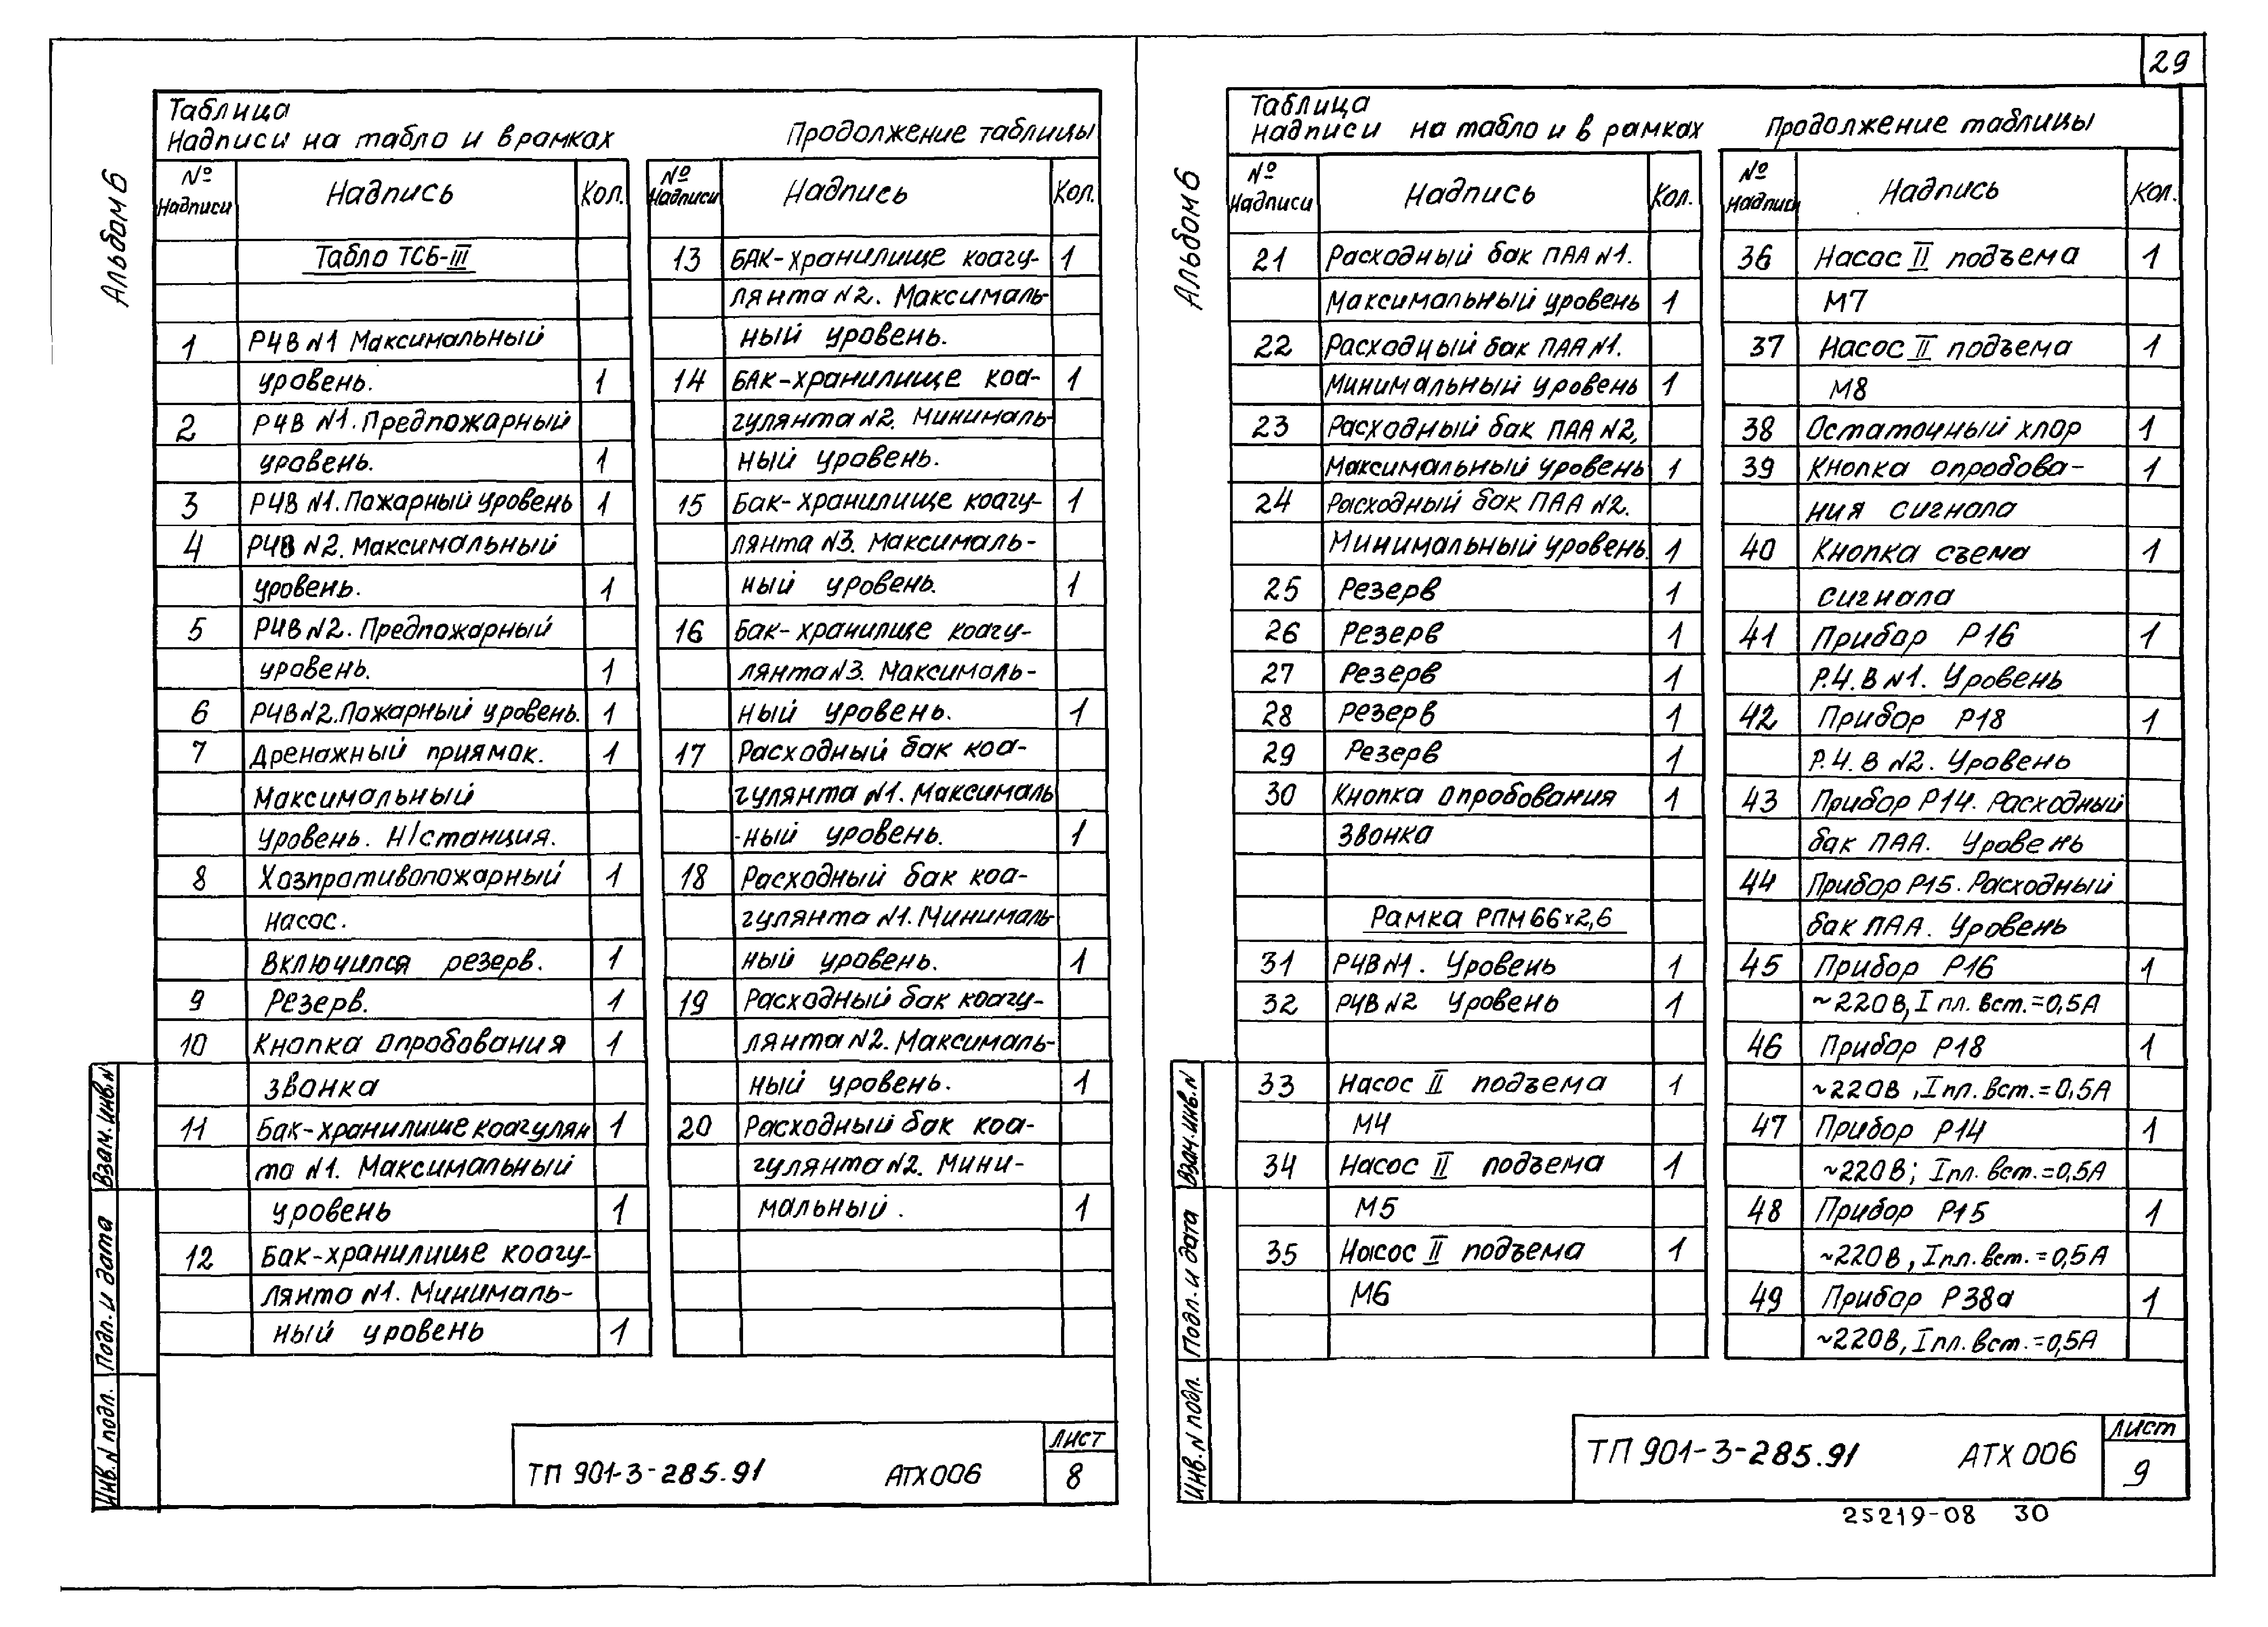 29
Альбом 6
Таблица
Надписи на табло и в рамках Продолжение таблицы
№ Надписи Надпись Кол.
Табло ТСБ-III
1 РЧВ N1 Максимальный
уровень. 1
2 РЧВ N1. Предпожарный
уровень. 1
3 РЧВ N1. Пожарный уровень 1
4 РЧВ N2. Максимальный
уровень. 1
5 РЧВ N2. Предпожарный
уровень. 1
6 РЧВ N2. Пожарный уровень. 1
7 Дренажный приямок. 1
Максимальный
уровень. Н/станция.
8 Хозпротивопожарный 1
насос.
Включился резерв. 1
9 Резерв. 1
10 Кнопка опробования 1
звонка
11 Бак-хранилише коагулян 1
та N1. Максимальный
уровень 1
12 Бак-хранилище коагу-
лянта N1. Минималь-
ный уровень 1
№ Надписи Надпись Кол.
13 БАК-хранилище коагу- 1
лянта N2. Максималь-
ный уровень.
14 БАК-хранилище коа- 1
гулянта N2. Минималь-
ный уровень.
15 Бак-хранилище коагу- 1
лянта N3. Максималь-
ный уровень. 1
16 Бак-хранилще коагу-
лянта N3. Максималь-
ный уровень. 1
17 Расходный бак коа-
гулянта N1. Максималь
-ный уровень. 1
18 Расходный бак коа-
гулянта N1. Минималь
ный уровень. 1
19 Расходный бак коагу-
лянта N2. Максималь-
ный уровень. 1
20 Расходный бак коа-
гулянта N2. Мини-
мальный. 1
Взам. инв. N
Подп. и дата
Инв. N подл.
ТП 901-3-285.91 АТХ006
Лист
8
Альбом 6
Таблица
Надписи на табло и в рамках Продолжение таблицы
№ Надписи Надпись Кол.
21 Расходный бак ПАА N1.
Максимальный уровень 1
22 Расходный бак ПАА N1.
Минимальный уровень 1
23 Расходный бак ПАА N2,
Максимальный уровень 1
24 Расходный бак ПАА N2.
Минимальный уровень. 1
25 Резерв 1
26 Резерв 1
27 Резерв 1
28 Резерв 1
29 Резерв 1
30 Кнопка опробования 1
звонка
Рамка РПМ 66×2,6
31 РЧВ N1. Уровень 1
32 РЧВ N2 Уровень 1
33 Насос II подъема 1
М4
34 Насос II подъема 1
М5
35 Насос II подъема 1
М6
№ Надписи Надпись Кол.
36 Насос II подъема 1
М7
37 Насос II подъема 1
М8
38 Остаточный хлор 1
39 Кнопка опробова- 1
ния сигнала
40 Кнопка съема 1
сигнала
41 Прибор Р16 1
Р.Ч.В N1. Уровень
42 Прибор Р18 1
Р.Ч.В N2. Уровень
43 Прибор Р14. Расходный
бак ПАА. Уровень
44 Прибор Р15. Расходный
бак ПАА. Уровень
45 Прибор Р16 1
~220В, I пл. вст.=0,5А
46 Прибор Р18 1
~220В, I пл. вст.=0,5А
47 Прибор Р14 1
~220В; I пл. вст.=0,5А
48 Прибор Р15 1
~220В, I пл. вст.=0,5А
49 Прибор Р38а 1
~220В, I пл. вст.=0,5А
Взам. инв. N
Подп. и дата
Инв. N подл.
ТП 901-3-285.91 АТХ 006
Лист
9
25219-08 30